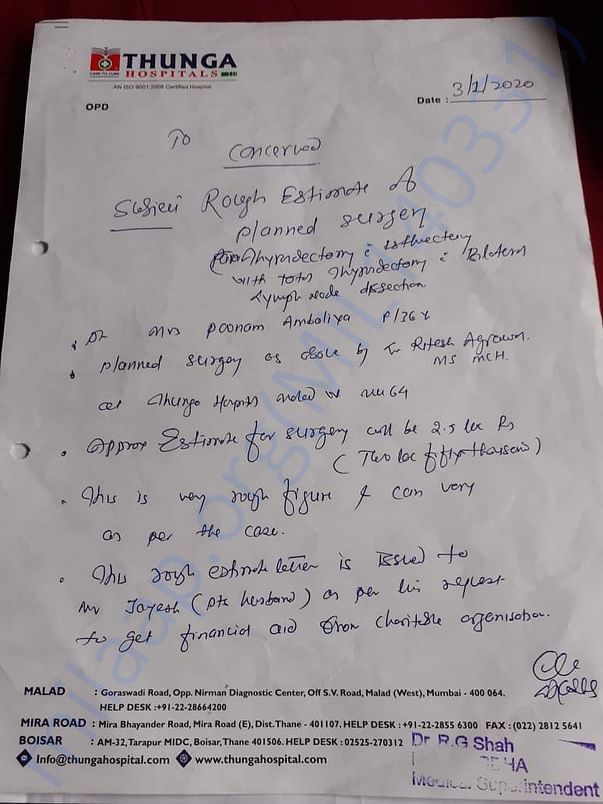 THUNGA
HOSPITALS
CARE TO CURE
AN ISO 9001:2008 Certified Hospital
OPD
Date : 3/1/2020
To
Concerned
Rough Estimate of
planned surgery
with Total Thyroidectomy c Bilateral
Lymph node dissection
Mrs Poonam Ambaliya F/36 Y
planned surgery as above by Dr Ritesh Agrawal
MS MCH.
at Thunga Hospital malad W 64
Approx Estimate for surgery will be 2.5 lac Rs
(Two lac fifty thousand)
This is very rough figure & can vary
as per the case.
This rough estimate letter is issued to
Mr Jayesh (pts husband) as per his request
to get financial aid from charitable organisation.
MALAD : Goraswadi Road, Opp. Nirman Diagnostic Center, Off S.V. Road, Malad (West), Mumbai - 400 064.
HELP DESK :+91-22-28664200
MIRA ROAD : Mira Bhayander Road, Mira Road (E), Dist.Thane - 401107. HELP DESK :+91-22-2855 6300 FAX : (022) 2812 5641
BOISAR : AM-32, Tarapur MIDC, Boisar, Thane 401506. HELP DESK : 02525-270312
Info@thungahospital.com www.thungahospital.com
Dr R.G Shah
Medical Superintendent